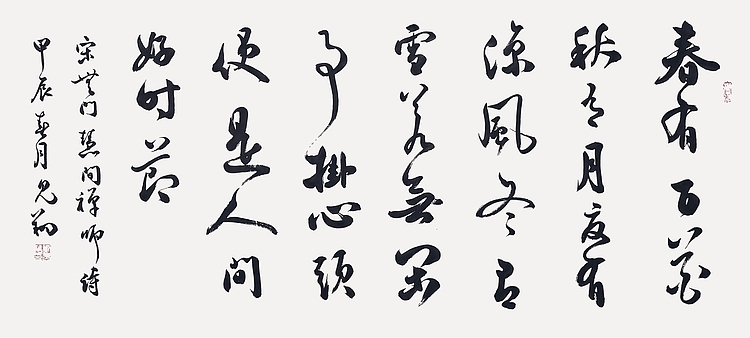 春有百花
秋有月夏有
涼風冬有
雪若無閑
事掛心頭
便是人間
好时节
宋無門慧開禪師詩
甲辰春月